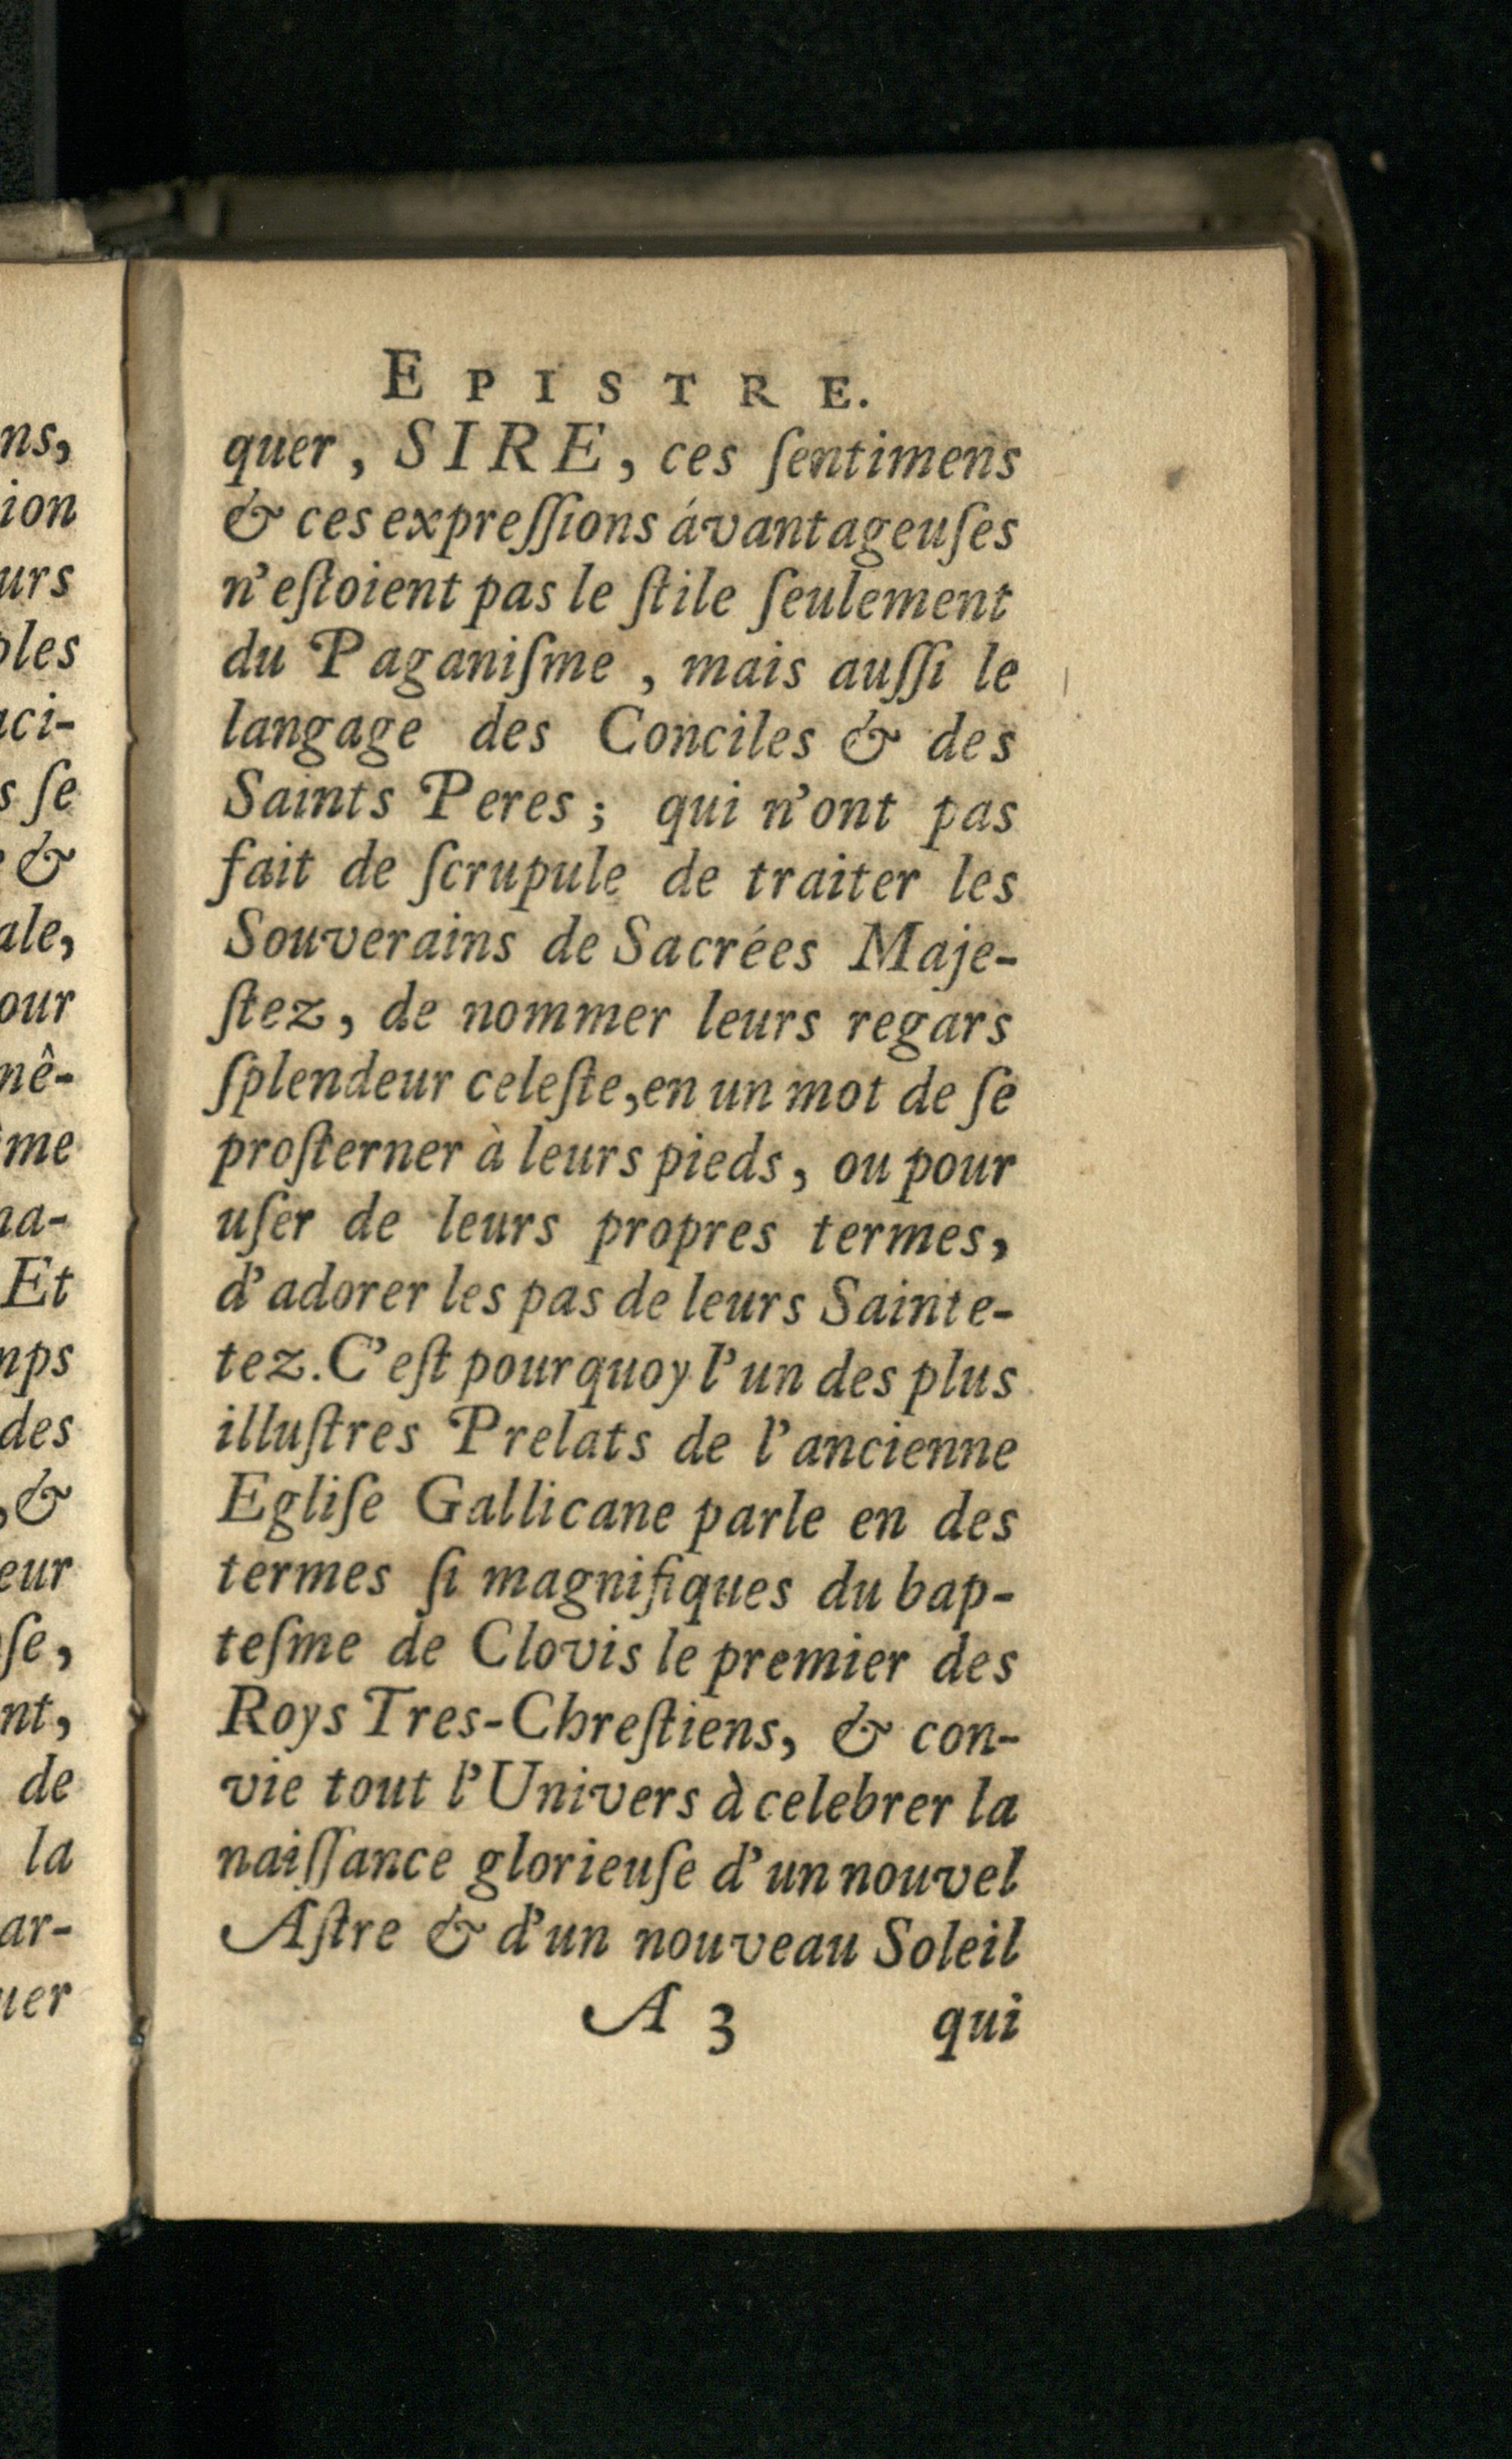 EPISTRE.
quer, SIRE, ces ſentimens
& ces expreſſions ávantageuſes
n'eſtoient pas le ſtile ſeulement
du Paganiſme, mais auſſi le
langage des Conciles & des
Saints Peres; qui n'ont pas
fait de ſcrupule de traiter les
Souverains de Sacrées Maje-
ſtez, de nommer leurs regars
ſplendeur celeſte, en un mot de ſe
proſterner à leurs pieds, ou pour
uſer de leurs propres termes,
d'adorer les pas de leurs Sainte-
tez. C'eſt pourquoy l'un des plus
illuſtres Prelats de l'ancienne
Egliſe Gallicane parle en des
termes ſi magnifiques du bap-
teſme de Clovis le premier des
Roys Tres-Chreſtiens, & con-
vie tout l'Univers à celebrer la
naiſſance glorieuſe d'un nouvel
Aſtre & d'un nouveau Soleil
A 3 qui